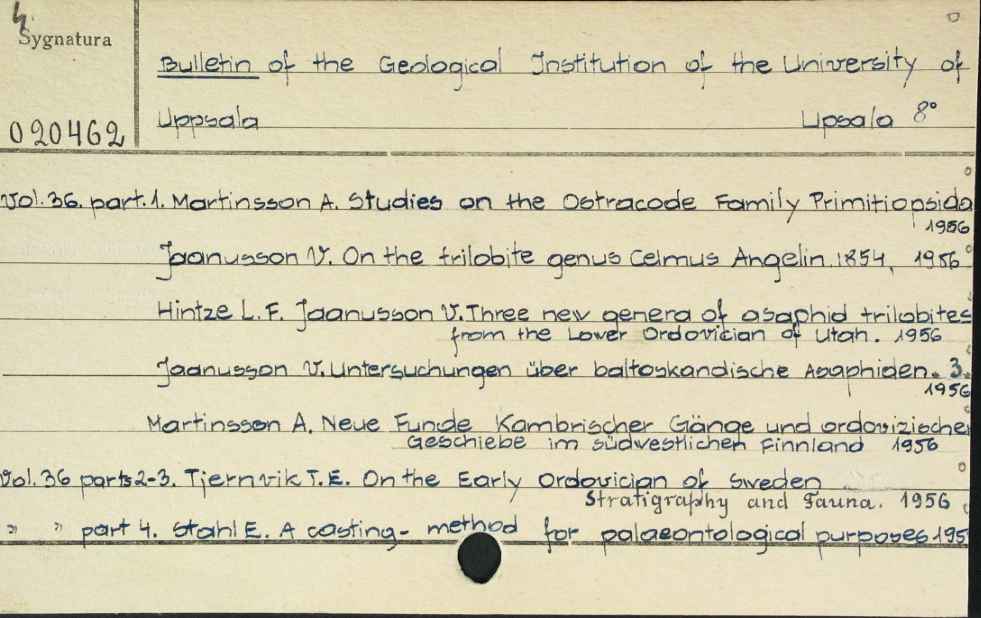 4.
Sygnatura
Bulletin of the Geological Institution of the University of
020462 Uppsala Upsala 8°
Vol. 36. part. 1. Martinsson A. Studies on the Ostracode Family Primitiopsida
1956
Jaanusson V. On the trilobite genus Celmus Angelin. 1854, 1956
Hintze L. F. Jaanusson V. Three new genera of asaphid trilobites
from the Lower Ordovician of Utah. 1956
Jaanusson V. Untersuchungen über baltoskandische Asaphiden. 3.
1956
Martinsson A. Neue Funde Kambrischer Gänge und ordovizischer
Geschiebe im südwestlichen Finnland 1956
Vol. 36 parts 2-3. Tjernvik T. E. On the Early Ordovician of Sweden
Stratigraphy and Fauna. 1956
" " part 4. Stahl E. A casting-method for palaeontological purposes 195